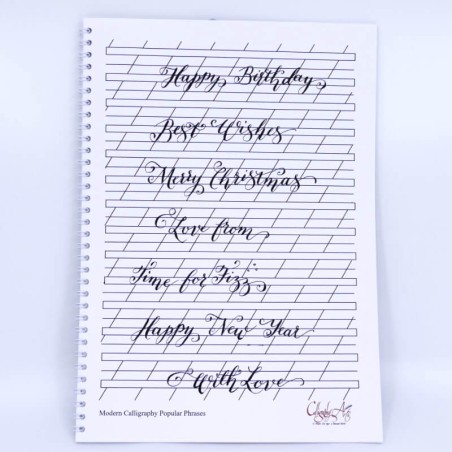 Happy Birthday
Best Wishes
Merry Christmas
Love from
Time for Fizz
Happy New Year
With Love
Modern Calligraphy Popular Phrases